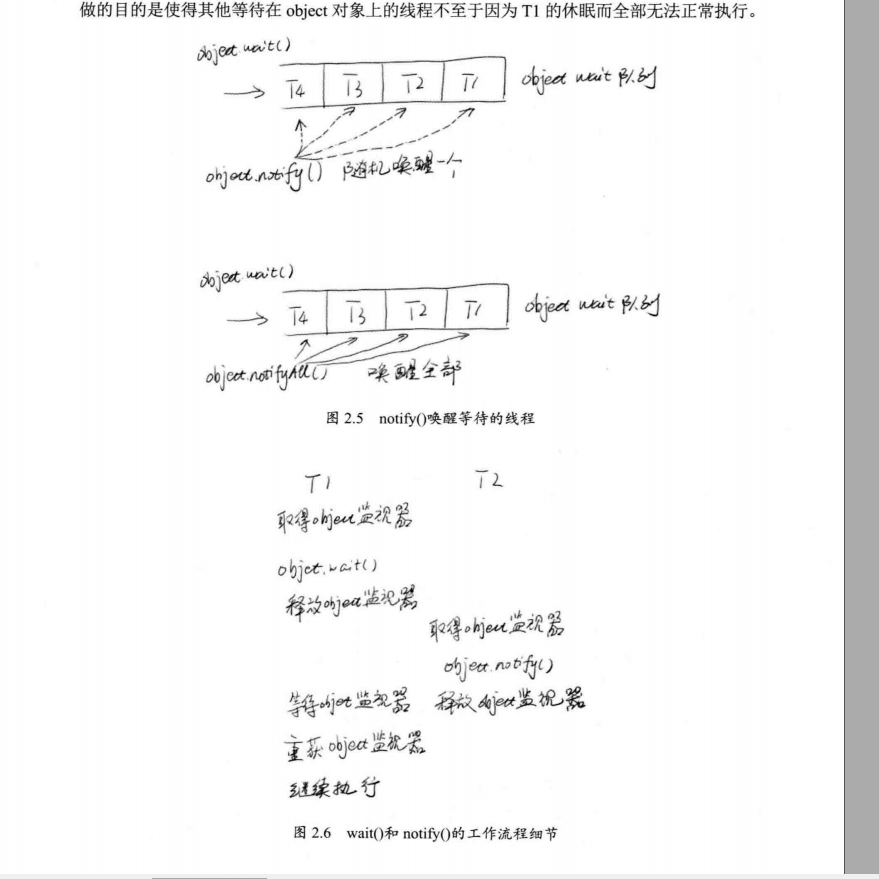 做的目的是使得其他等待在 object 对象上的线程不至于因为 T1 的休眠而全部无法正常执行。
object.wait()
T4 T3 T2 T1 object wait 队列
object.notify() 随机唤醒一个
object.wait()
T4 T3 T2 T1 object wait 队列
object.notifyAll() 唤醒全部
图 2.5 notify()唤醒等待的线程
T1 T2
取得object监视器
objct.wait()
释放object监视器
取得object监视器
object.notify()
等待objet监视器 释放object监视器
重获object监视器
继续执行
图 2.6 wait()和 notify()的工作流程细节